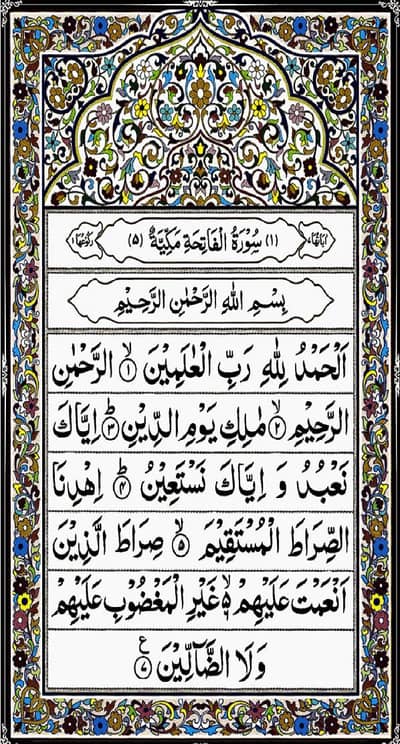 اٰیَاتُهَا ٧ (١) سُوْرَةُ الْفَاتِحَةِ مَكِّيَّةٌ (٥) رُكُوْعُهَا ١
بِسْمِ اللهِ الرَّحْمٰنِ الرَّحِيْمِ
اَلْحَمْدُ لِلّٰهِ رَبِّ الْعٰلَمِيْنَ ۙ﴿١﴾ الرَّحْمٰنِ
الرَّحِيْمِ ۙ﴿٢﴾ مٰلِكِ يَوْمِ الدِّيْنِ ؕ﴿٣﴾ اِيَّاكَ
نَعْبُدُ وَ اِيَّاكَ نَسْتَعِيْنُ ؕ﴿٤﴾ اِهْدِنَا
الصِّرَاطَ الْمُسْتَقِيْمَ ۙ﴿٥﴾ صِرَاطَ الَّذِيْنَ
اَنْعَمْتَ عَلَيْهِمْ ۙ﴿٦﴾ غَيْرِ الْمَغْضُوْبِ عَلَيْهِمْ
وَلَا الضَّآلِّيْنَ ﴿٧﴾ ع